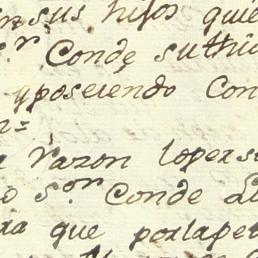 sus hijos quie
S.r Conde su thio
yposeiendo Con
n=
Razon lopersi
o S.or Conde de
ra que porlaper